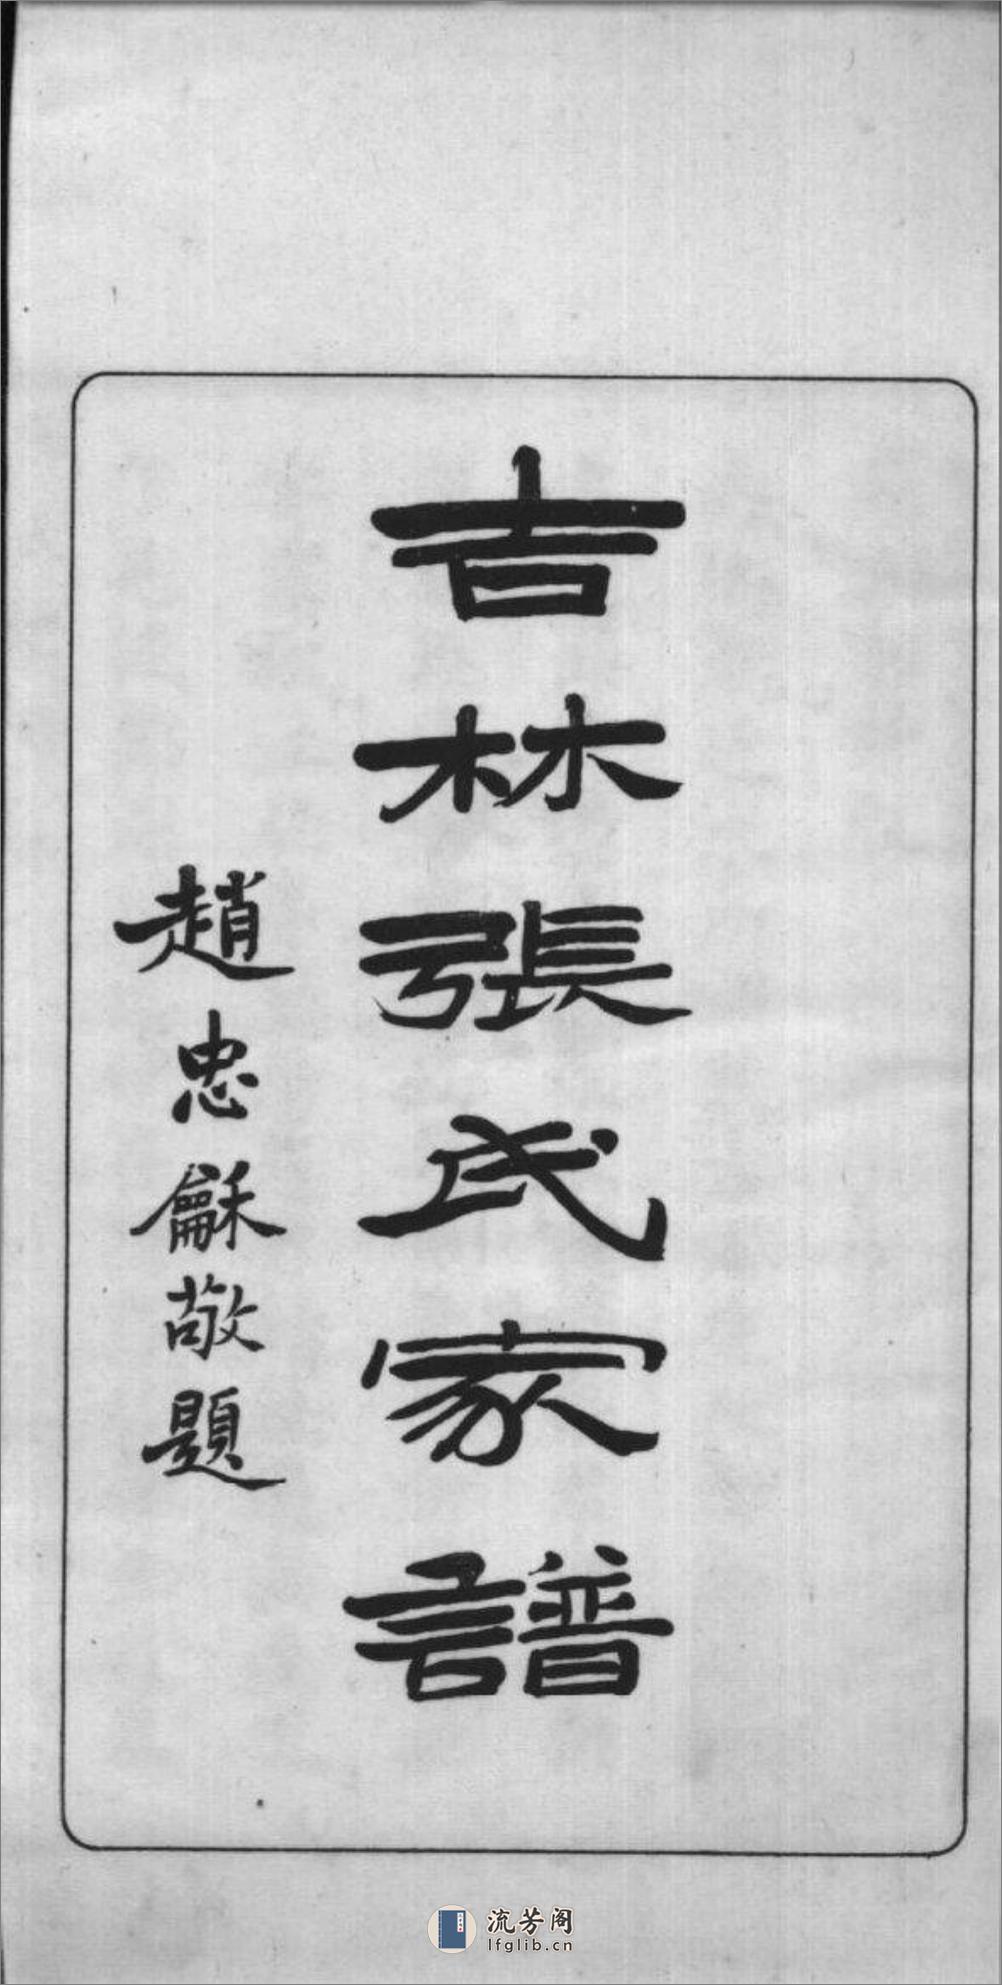 吉林張氏家譜
趙忠龢敬題
流芳阁
lfglib.cn